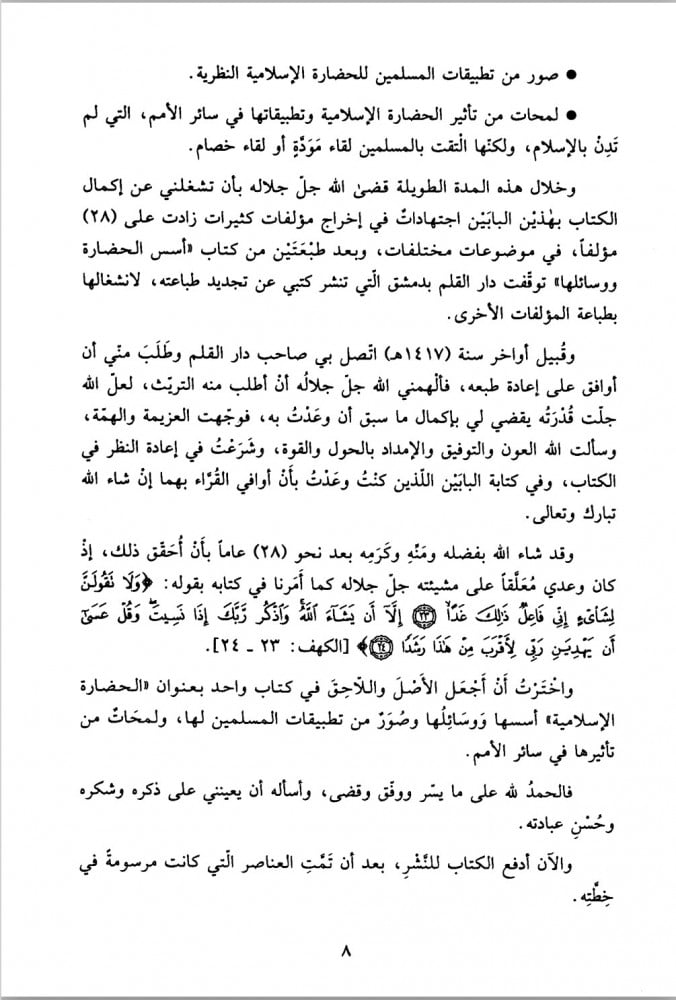 ● صور من تطبيقات المسلمين للحضارة الإسلامية النظرية.
● لمحات من تأثير الحضارة الإسلامية وتطبيقاتها في سائر الأمم، التي لم
تَدِنْ بالإسلام، ولكنّها الْتقت بالمسلمين لقاء مَوَدَّةٍ أو لقاء خصام.
وخلال هذه المدة الطويلة قضىٰ الله جلّ جلاله بأن تشغلني عن إكمال
الكتاب بهٰذيْن البابَيْن اجتهاداتٌ في إخراج مؤلفات كثيرات زادت على (٢٨)
مؤلفاً، في موضوعات مختلفات، وبعد طبْعَتَيْن من كتاب «أسس الحضارة
ووسائلها» توقّفت دار القلم بدمشق الّتي تنشر كتبي عن تجديد طباعته، لانشغالها
بطباعة المؤلفات الأخرى.
وقُبيل أواخر سنة (١٤١٧هـ) اتّصل بي صاحب دار القلم وطَلَبَ منّي أن
أوافق على إعادة طبعه، فألْهمني الله جلّ جلالُه أنْ أطلب منه التريّث، لعلّ الله
جلّت قُدْرَتُه يقضي لي بإكمال ما سبق أن وعَدْتُ به، فوجّهت العزيمة والهمّة،
وسألت الله العون والتوفيق والإمداد بالحول والقوة، وشَرَعْتُ في إعادة النظر في
الكتاب، وفي كتابة البابَيْن اللّذين كنْتُ وعَدْتُ بأَنْ أوافي القُرَّاء بهما إنْ شاء الله
تبارك وتعالى.
وقد شاء الله بفضله ومَنِّه وكَرَمِه بعد نحو (٢٨) عاماً بأَنْ أُحَقّق ذلك، إذْ
كان وعدي مُعَلَّقاً على مشيئته جلّ جلاله كما أمَرنا في كتابه بقوله: ﴿وَلَا نَقُولَنَّ
لِشَاْىۡءٍ إِنِّي فَاعِلٌ ذَٰلِكَ غَدًا ٢٣ إِلَّآ أَن يَشَآءَ ٱللَّهُ وَٱذْكُر رَّبَّكَ إِذَا نَسِيتَ وَقُلْ عَسَىٰٓ
أَن يَهْدِيَنِ رَبِّي لِأَقْرَبَ مِنْ هَٰذَا رَشَدًا ٢٤﴾ [الكهف: ٢٣ ـ ٢٤].
واخْتَرْتُ أنْ أجْعَل الأَصْلَ واللاحِقَ في كتاب واحد بعنوان «الحضارة
الإسلامية» أسسها وَوَسَائِلُها وصُوَرٌ من تطبيقات المسلمين لها، ولمحَاتٌ من
تأثيرها في سائر الأمم.
فالحمدُ لله على ما يسّر ووفّق وقضى، وأسأله أن يعينني على ذكره وشكره
وحُسْنِ عبادته.
والآن أدفع الكتاب للنَّشْرِ، بعد أن تَمَّتِ العناصر الّتي كانت مرسومةً في
خِطَّتِه.
٨